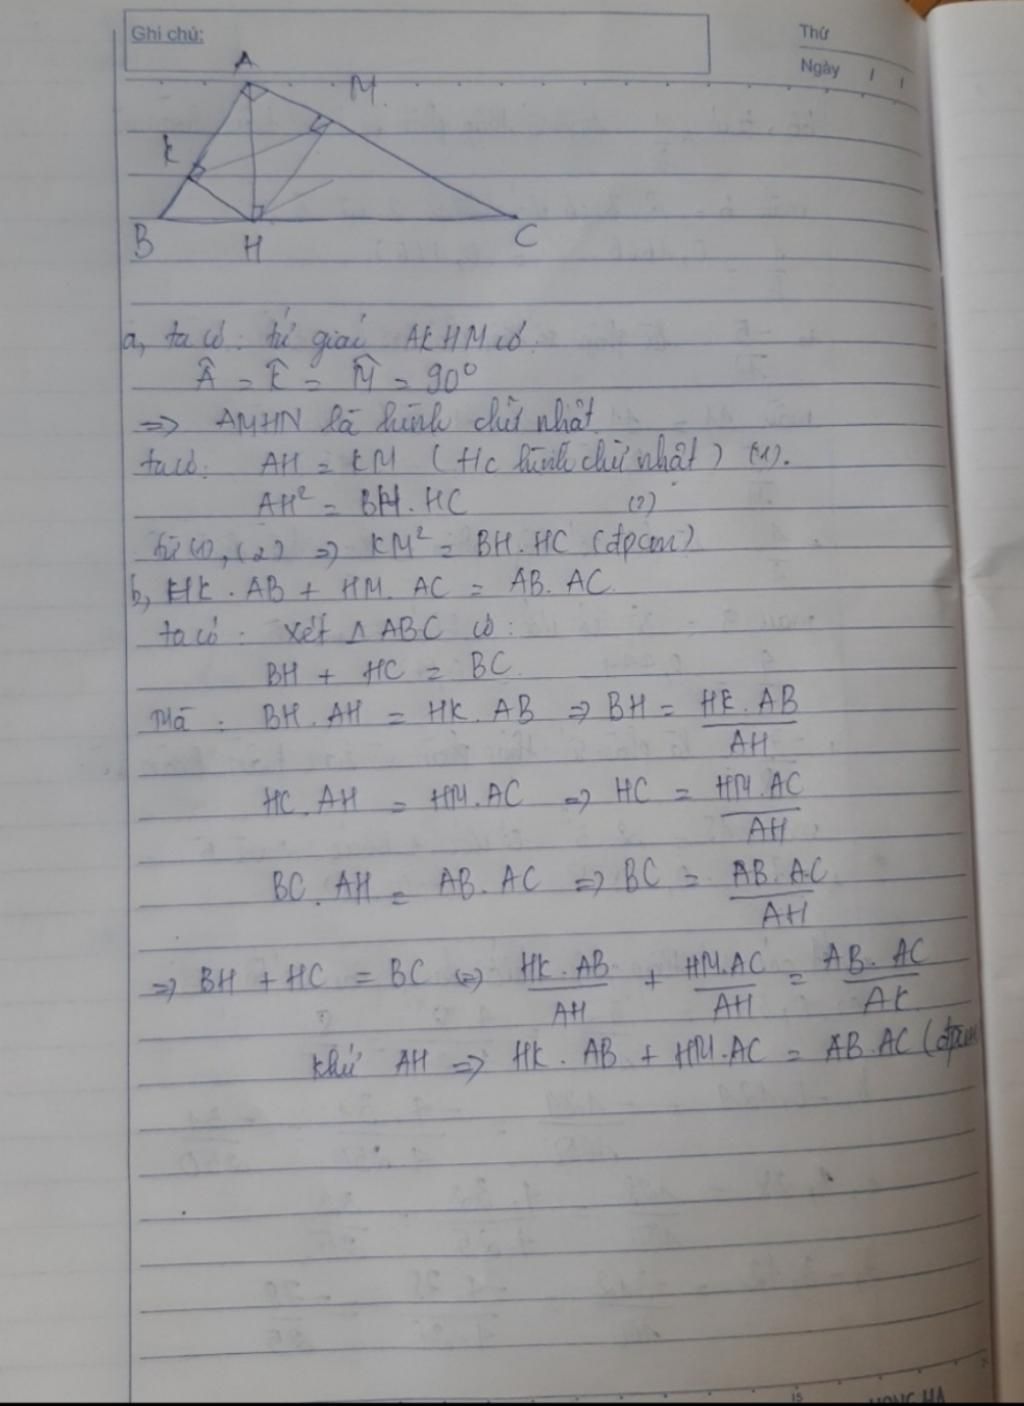 Ghi chú:
Thứ
Ngày / /
A
M
K
B
H
C
a, ta có: tứ giác AKHM có
Â = K̂ = M̂ = 90°
=> AMHN là hình chữ nhật
ta có: AH = KM (Hc hình chữ nhật) (1).
AH² = BH.HC (2)
từ (1), (2) => KM² = BH.HC (đpcm)
b, HK.AB + HM.AC = AB.AC
ta có: xét △ABC có:
BH + HC = BC.
Mà: BH.AH = HK.AB => BH = HK.AB / AH
HC.AH = HM.AC => HC = HM.AC / AH
BC.AH = AB.AC => BC = AB.AC / AH
=> BH + HC = BC <=> HK.AB / AH + HM.AC / AH = AB.AC / AK
khử AH => HK.AB + HM.AC = AB.AC (đpcm
15
HONG HA